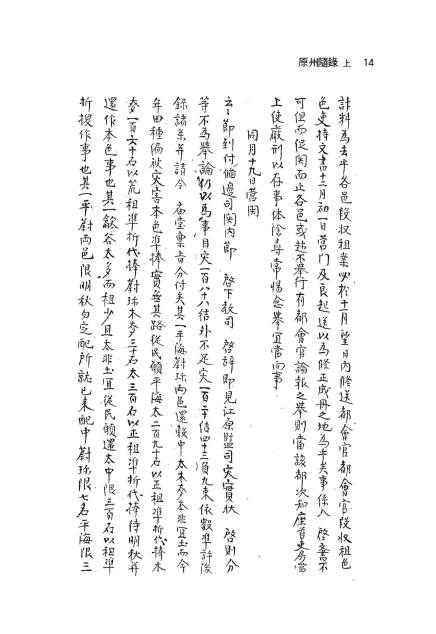 原州隨錄 上 14
計料為去乎各邑段收租案必於十一月望日內修送都會官都會官段收租色
色吏持文書十二月初一日營門及良起送以為修正成冊之地為乎矣事係入 啓嗇不
可但而促關而止各邑或趁不舉行有都會官論報之舉則當該都次知座首吏房當
上使嚴刑以存事体除尋常惕念舉宜當向事
同月十九日營關
云云節到付備邊司關內節 啓下教司 啓辞即見江原監司灾實狀 啓則分
等不為舉論以馬事目灾一百八十八結外不足灾一百二十結四十三負九束依數準許後
錄諸条并請令 廟堂稟旨分付矣其一平海蔚珎兩邑還餘中太木麥本非宜土而今
年田種偏被灾害本色準捧實無其路從民願平海太二百九十石以正租準折代捧木
麥一百六十石以荒租準折代捧蔚珎木麥三十石太三百石以正租準折代捧待明秋并
還作本色事也其一歙谷太多而租少且太非土宜從民願還太中限三百石以租準
折換作事也其一平蔚兩邑限明秋勿定配所就已來配中蔚珎限七名平海限三